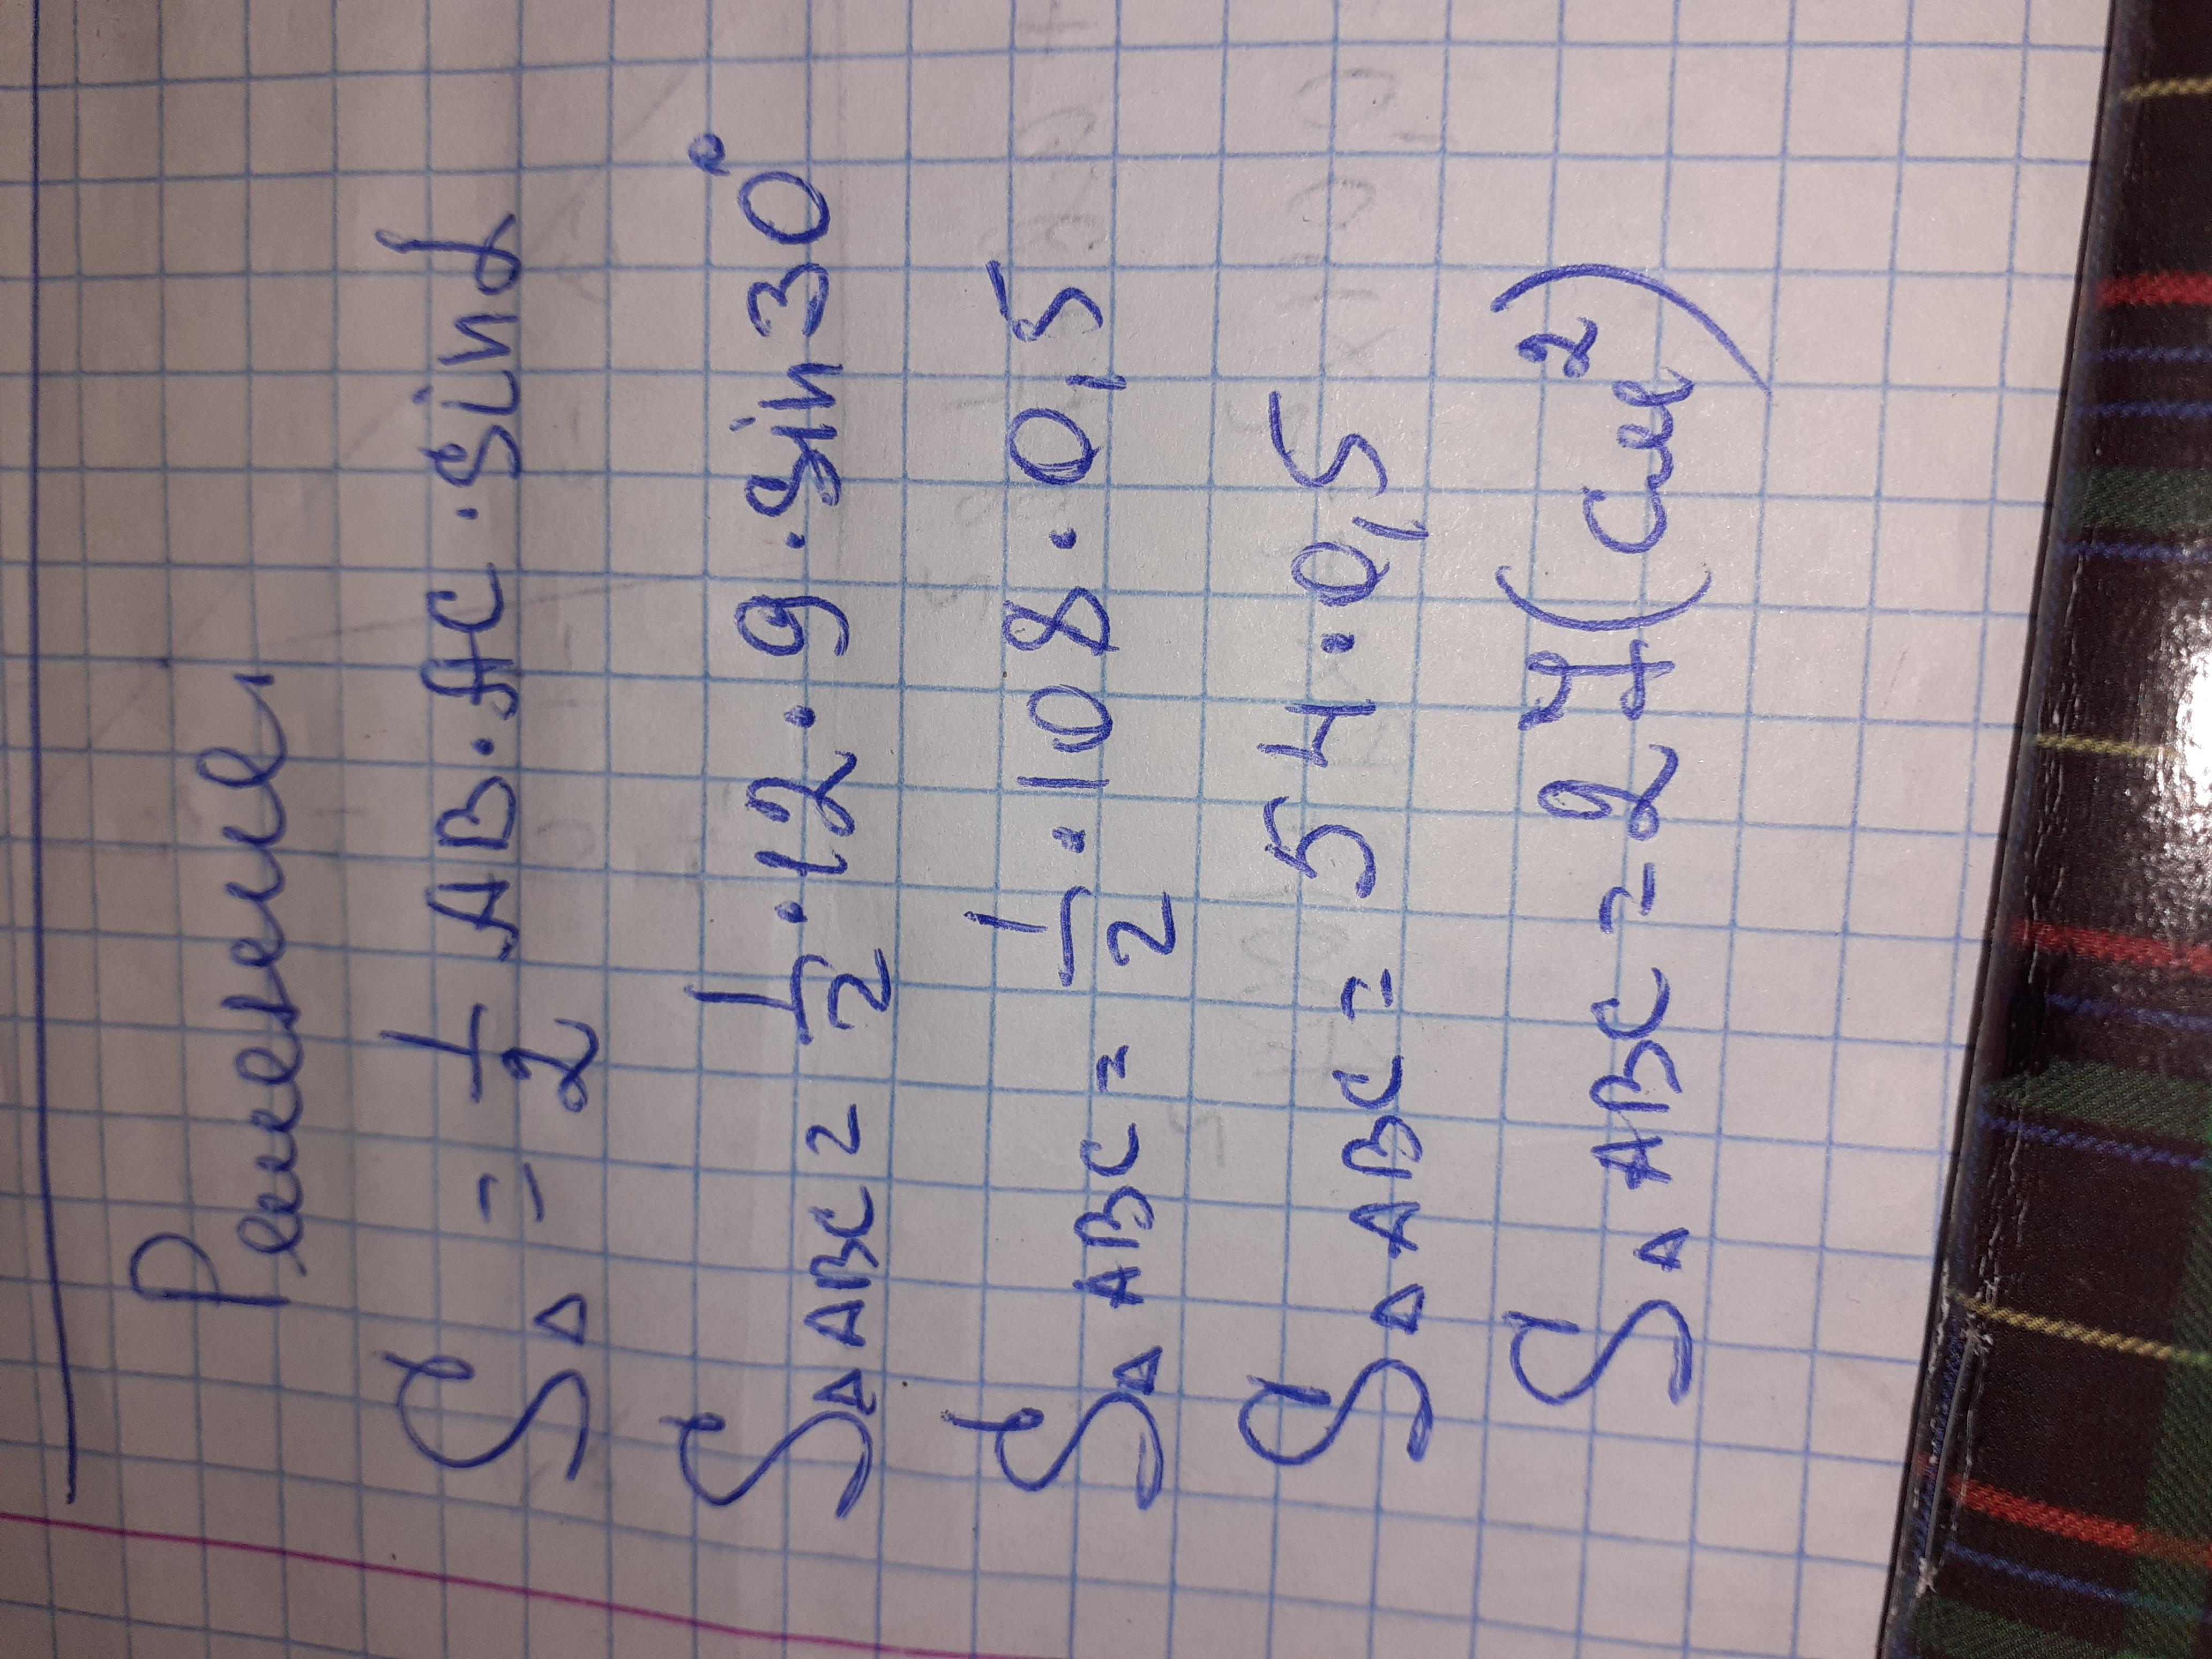 Решение
S△ = 1/2 AB · AC · sin α
S△ABC = 1/2 · 12 · 9 · sin 30°
S△ABC = 1/2 · 108 · 0,5
S△ABC = 54 · 0,5
S△ABC = 27 (см²)